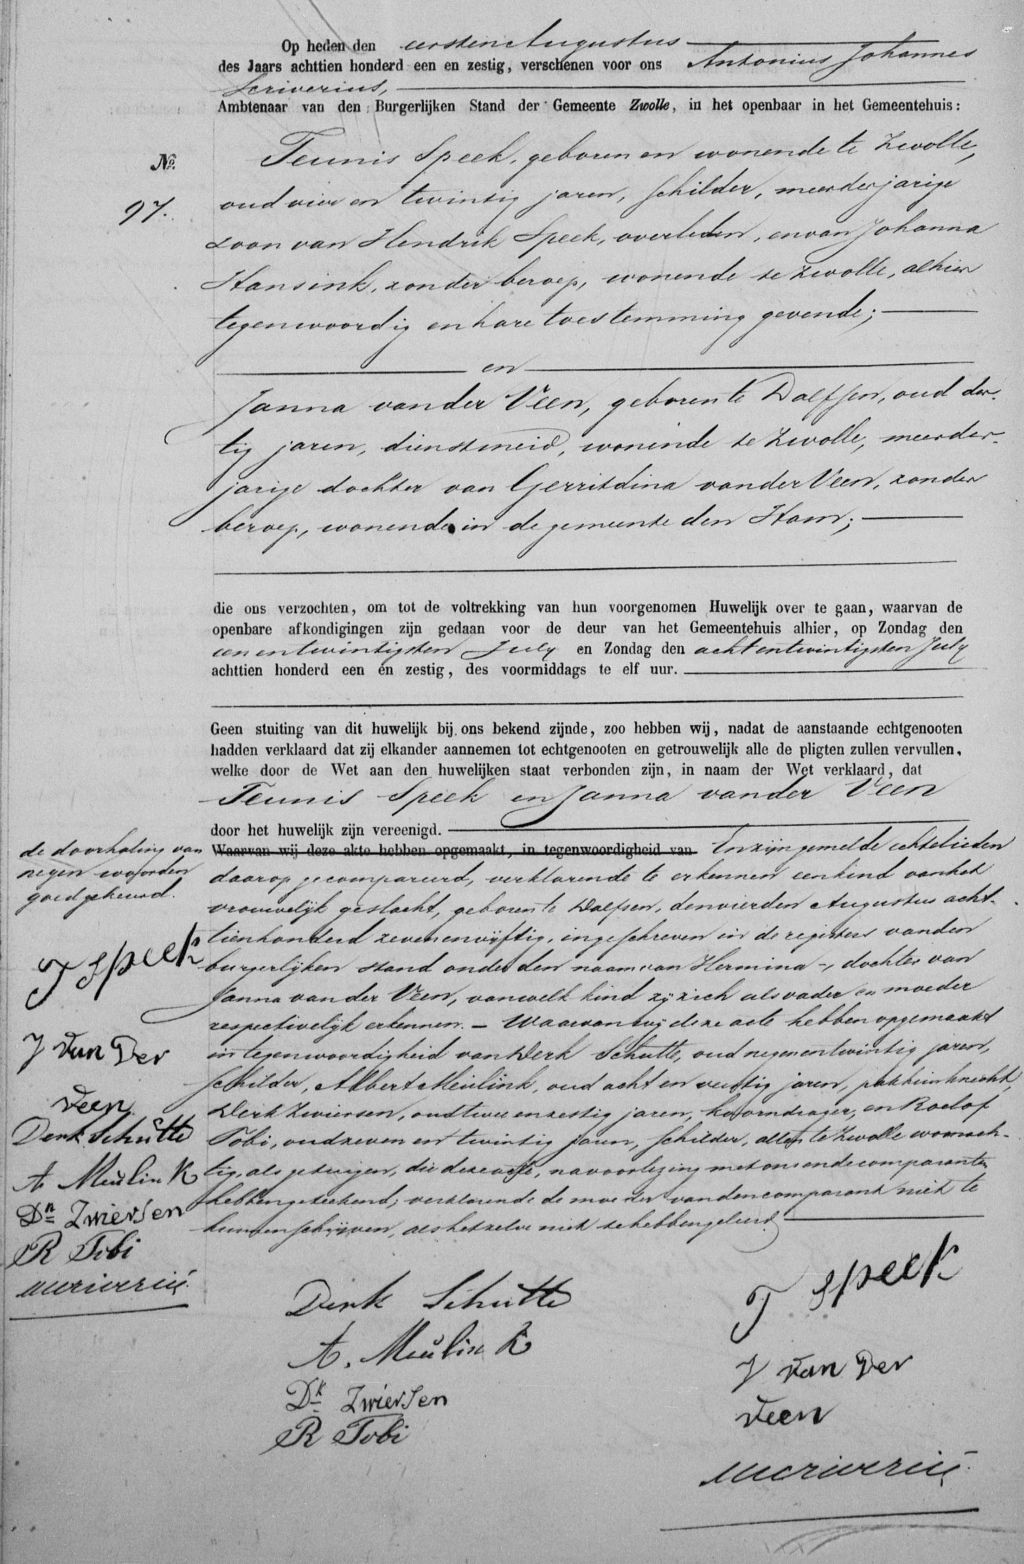 Op heden den eersten Augustus
des Jaars achttien honderd een en zestig, verschenen voor ons Antonius Johannes
Scriverius,
Ambtenaar van den Burgerlijken Stand der Gemeente Zwolle, in het openbaar in het Gemeentehuis:
No.
97.
Teunis Speek, geboren en wonende te Zwolle,
oud vier en twintig jaren, schilder, meerderjarige
zoon van Hendrik Speek, overleden, en van Johanna
Hansink, zonder beroep, wonende te Zwolle, alhier
tegenwoordig en hare toestemming gevende;
en
Janna van der Veen, geboren te Dalfsen, oud der-
tig jaren, dienstmeid, wonende te Zwolle, meerder-
jarige dochter van Gerritdina van der Veen, zonder
beroep, wonende in de gemeente den Ham;
die ons verzochten, om tot de voltrekking van hun voorgenomen Huwelijk over te gaan, waarvan de
openbare afkondigingen zijn gedaan voor de deur van het Gemeentehuis alhier, op Zondag den
een en twintigsten July en Zondag den acht en twintigsten July
achttien honderd een en zestig, des voormiddags te elf uur.
Geen stuiting van dit huwelijk bij ons bekend zijnde, zoo hebben wij, nadat de aanstaande echtgenooten
hadden verklaard dat zij elkander aannemen tot echtgenooten en getrouwelijk alle de pligten zullen vervullen,
welke door de Wet aan den huwelijken staat verbonden zijn, in naam der Wet verklaard, dat
Teunis Speek en Janna van der Veen
door het huwelijk zijn vereenigd.
de doorhaling van
negen woorden
goedgekeurd.
Waarvan wij deze akte hebben opgemaakt, in tegenwoordigheid van En zijn gemelde echtelieden
daarop gecompareerd, verklarende te erkennen een kind van het
vrouwelijk geslacht, geboren te Dalfsen, den vierden Augustus acht-
tienhonderd zeven en vijftig, ingeschreven in de registers van den
burgerlijken stand onder den naam van Hermina -, dochter van
Janna van der Veen, van welk kind zij zich als vader en moeder
respectivelijk erkennen. - Waarvan wij deze acte hebben opgemaakt
in tegenwoordigheid van Derk Schutte, oud negen en twintig jaren,
schilder, Albert Meulink, oud acht en veertig jaren, pakhuisknecht,
Derk Zwiersen, oud twee en zestig jaren, koorndrager, en Roelof
Tobi, oud zeven en twintig jaren, schilder, allen te Zwolle woonach-
tig, als getuigen, die deze acte, na voorlezing met ons en de comparanten
hebben geteekend, verklarende de moeder van den comparant niet te
kunnen schrijven, als hetzelve niet te hebben geleerd.
T Speek
J van Der
Veen
Derk Schutte
A Meulink
Dk Zwiersen
R Tobi
Scriverius
Derk Schutte
A. Meulink
Dk Zwiersen
R Tobi
T Speek
J van Der
Veen
Scriverius